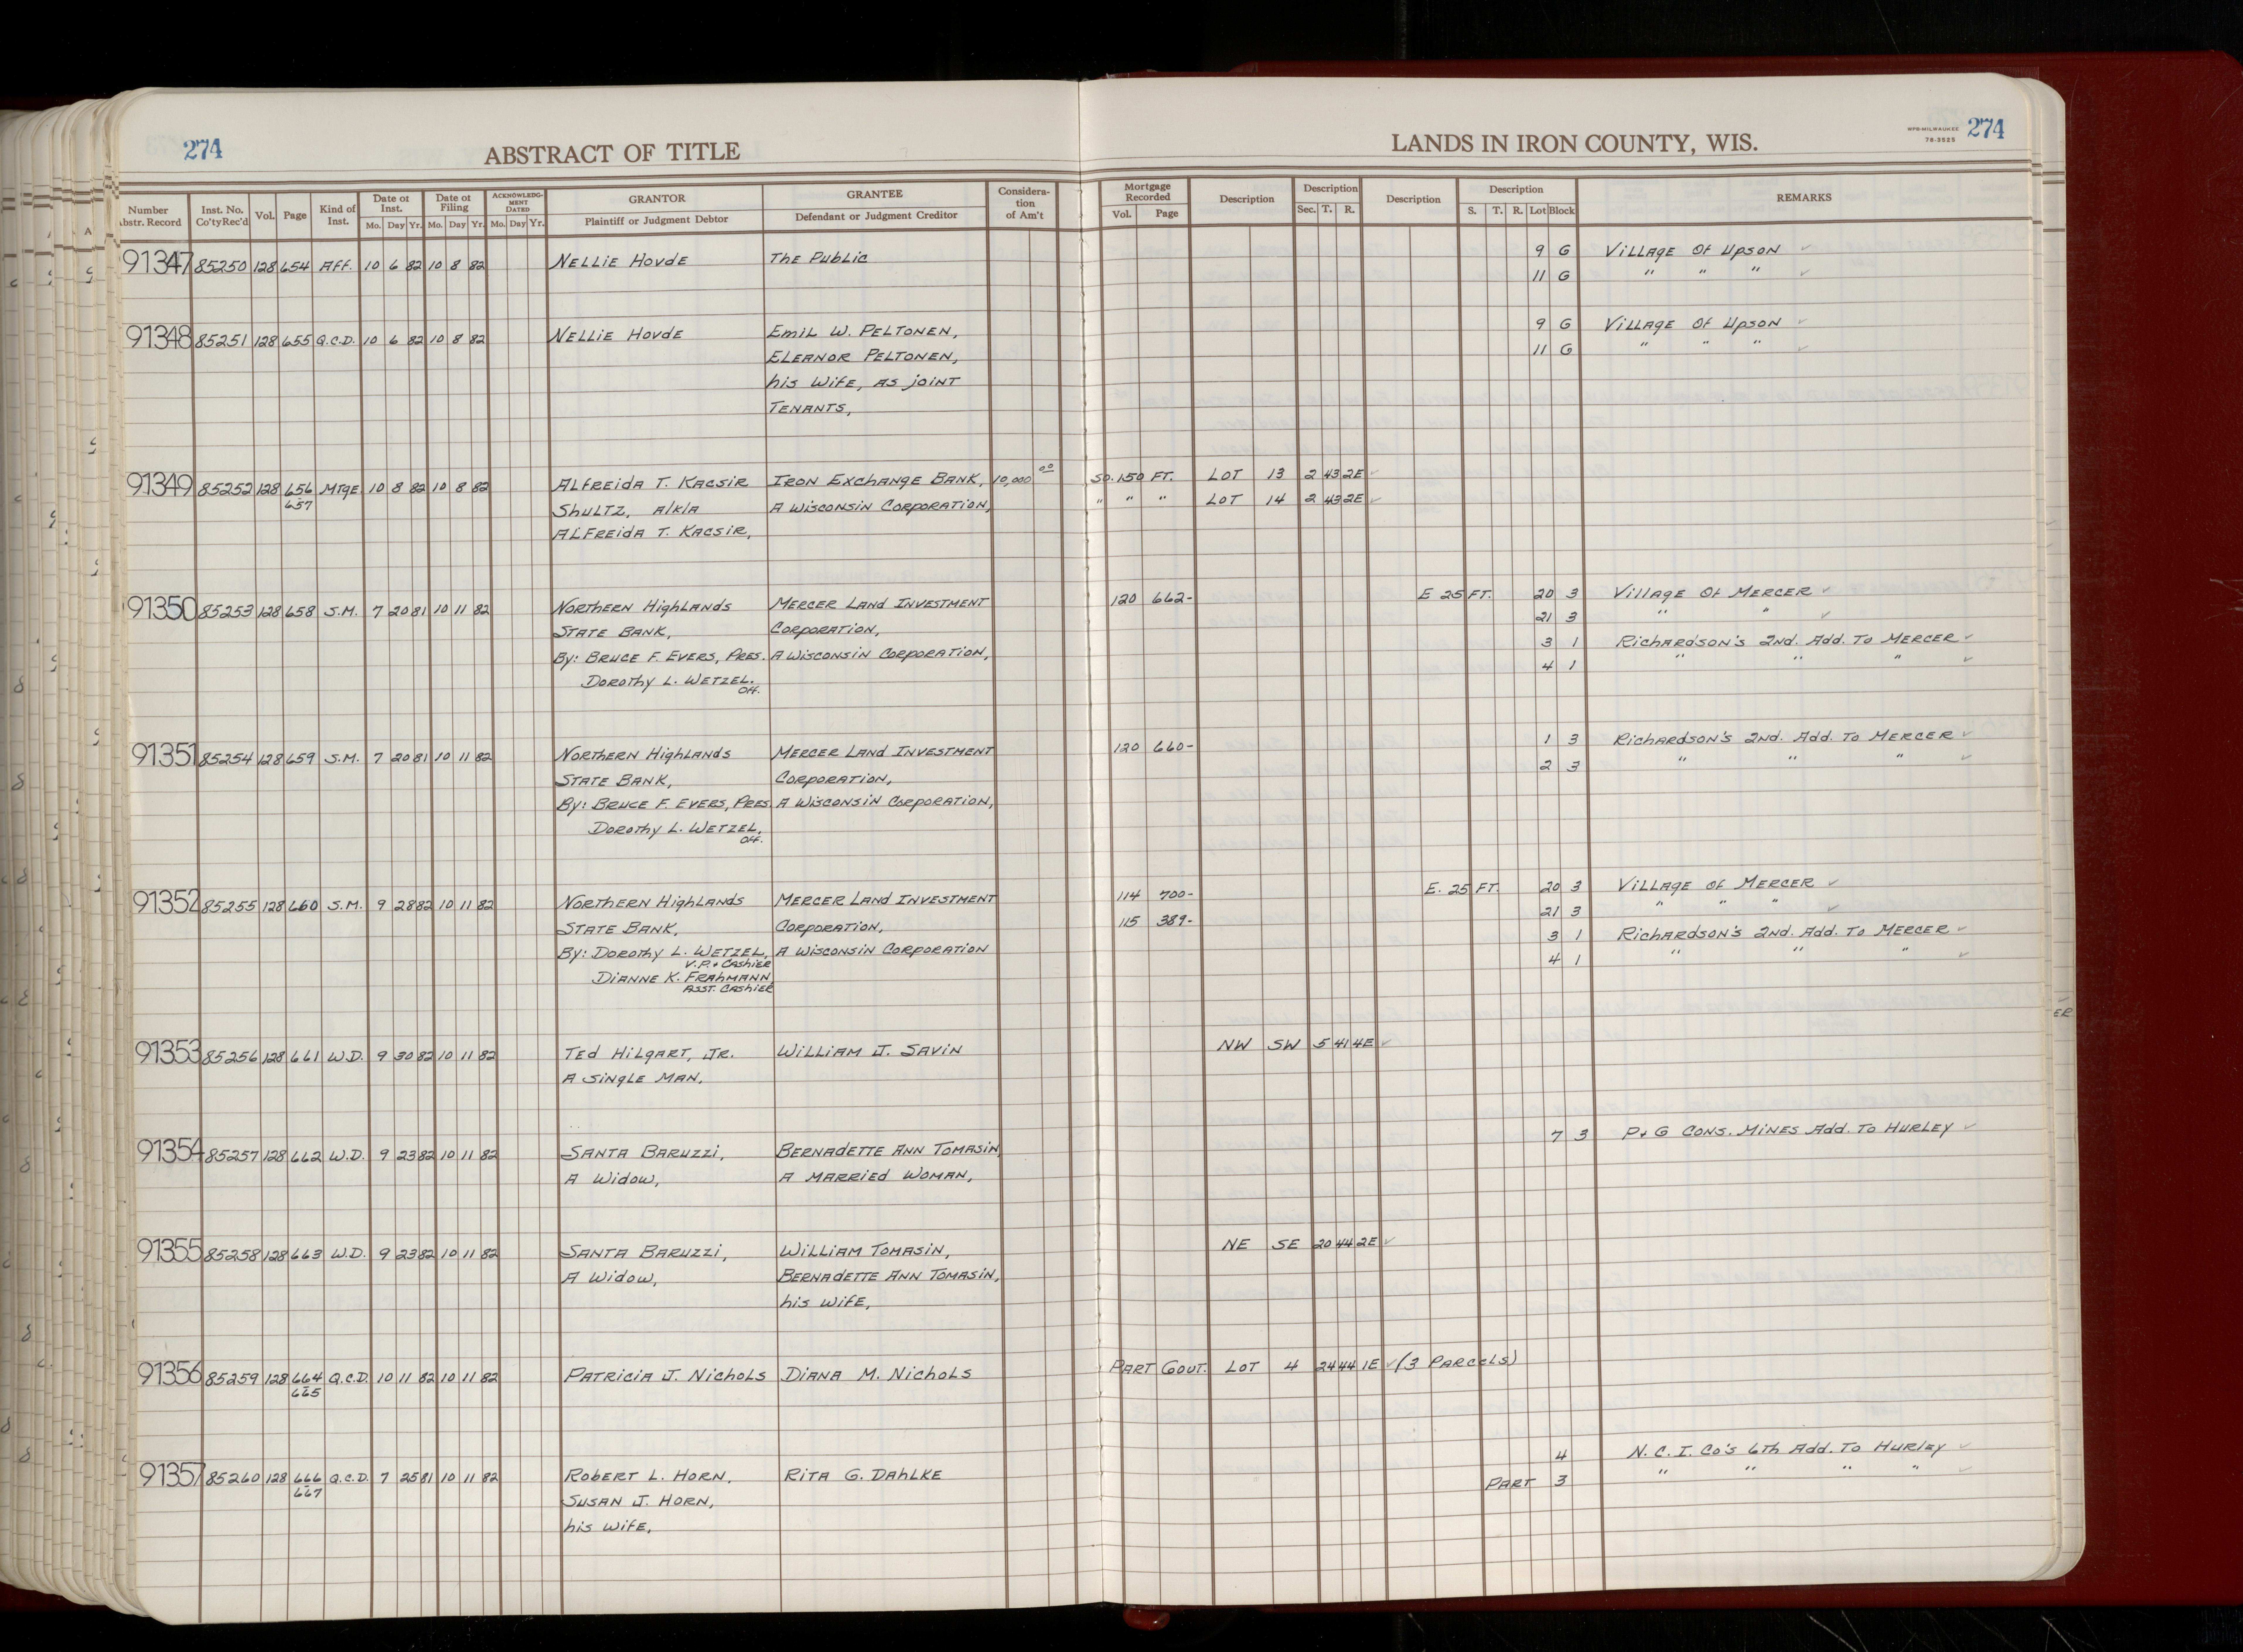 274
ABSTRACT OF TITLE
LANDS IN IRON COUNTY, WIS.
MPB-MILWAUKEE
78-3525
274
Number
Abstr. Record
Inst. No.
Co'ty Rec'd
Vol.
Page
Kind of
Inst.
Date of
Inst.
Mo. Day Yr.
Date of
Filing
Mo. Day Yr.
ACKNOWLEDG-
MENT
DATED
Mo. Day Yr.
GRANTOR
Plaintiff or Judgment Debtor
GRANTEE
Defendant or Judgment Creditor
Considera-
tion
of Am't
Mortgage
Recorded
Vol. Page
Description
Description
Sec. T. R.
Description
Description
S. T. R. Lot Block
REMARKS
91347 85250 128 654 Aff. 10 6 82 10 8 82 Nellie Hovde The Public 9 G Village Of Upson ✓
11 G " " " ✓
91348 85251 128 655 Q.C.D. 10 6 82 10 8 82 Nellie Hovde Emil W. Peltonen, 9 G Village Of Upson ✓
Eleanor Peltonen, 11 G " " " ✓
his wife, as joint
Tenants,
91349 85252 128 656 Mtge 10 8 82 10 8 82 Alfreida T. Kacsir Iron Exchange Bank, 10,000 00 So. 150 FT. Lot 13 2 43 2E ✓
657 Shultz, a/k/a A Wisconsin Corporation, " " " Lot 14 2 43 2E ✓
Alfreida T. Kacsir,
91350 85253 128 658 S.M. 7 20 81 10 11 82 Northern Highlands Mercer Land Investment 120 662- E 25 FT. 20 3 Village Of Mercer ✓
State Bank, Corporation, 21 3 " " ✓
By: Bruce F. Evers, Pres. A Wisconsin Corporation, 3 1 Richardson's 2nd. Add. To Mercer ✓
Dorothy L. Wetzel. 4 1 " " " ✓
Off.
91351 85254 128 659 S.M. 7 20 81 10 11 82 Northern Highlands Mercer Land Investment 120 660- 1 3 Richardson's 2nd. Add. To Mercer ✓
State Bank, Corporation, 2 3 " " " ✓
By: Bruce F. Evers, Pres. A Wisconsin Corporation,
Dorothy L. Wetzel,
Off.
91352 85255 128 660 S.M. 9 28 82 10 11 82 Northern Highlands Mercer Land Investment 114 700- E. 25 FT. 20 3 Village Of Mercer ✓
State Bank, Corporation, 115 389- 21 3 " " " ✓
By: Dorothy L. Wetzel, A Wisconsin Corporation 3 1 Richardson's 2nd. Add. To Mercer ✓
V.P. & Cashier
Dianne K. Frahmann, 4 1 " " " ✓
Asst. Cashier
91353 85256 128 661 W.D. 9 30 82 10 11 82 Ted Hilgart, Jr. William J. Savin NW SW 5 41 4E ✓
A single man,
91354 85257 128 662 W.D. 9 23 82 10 11 82 Santa Baruzzi, Bernadette Ann Tomasin, 7 3 P & G Cons. Mines Add. To Hurley ✓
A Widow, A Married Woman,
91355 85258 128 663 W.D. 9 23 82 10 11 82 Santa Baruzzi, William Tomasin, NE SE 20 44 2E ✓
A Widow, Bernadette Ann Tomasin,
his wife,
91356 85259 128 664 Q.C.D. 10 11 82 10 11 82 Patricia J. Nichols Diana M. Nichols Part Gout. Lot 4 24 44 1E ✓ (3 Parcels)
665
91357 85260 128 666 Q.C.D. 7 25 81 10 11 82 Robert L. Horn, Rita G. Dahlke 4 N.C.I. Co's 6th Add. To Hurley ✓
667 Susan J. Horn, Part 3 " " " " ✓
his wife,